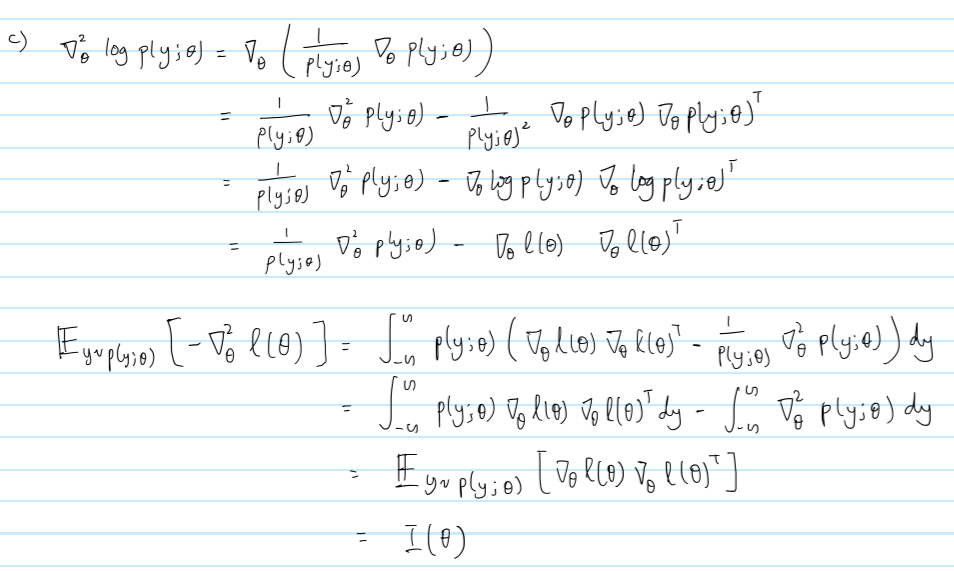 c) ∇²_θ log p(y;θ) = ∇_θ ( 1/p(y;θ) ∇_θ p(y;θ) )
= 1/p(y;θ) ∇²_θ p(y;θ) - 1/p(y;θ)² ∇_θ p(y;θ) ∇_θ p(y;θ)^T
= 1/p(y;θ) ∇²_θ p(y;θ) - ∇_θ log p(y;θ) ∇_θ log p(y;θ)^T
= 1/p(y;θ) ∇²_θ p(y;θ) - ∇_θ l(θ) ∇_θ l(θ)^T
𝔼_{y~p(y;θ)} [ -∇²_θ l(θ) ] = ∫_{-∞}^{∞} p(y;θ) ( ∇_θ l(θ) ∇_θ l(θ)^T - 1/p(y;θ) ∇²_θ p(y;θ) ) dy
= ∫_{-∞}^{∞} p(y;θ) ∇_θ l(θ) ∇_θ l(θ)^T dy - ∫_{-∞}^{∞} ∇²_θ p(y;θ) dy
= 𝔼_{y~p(y;θ)} [ ∇_θ l(θ) ∇_θ l(θ)^T ]
= I(θ)